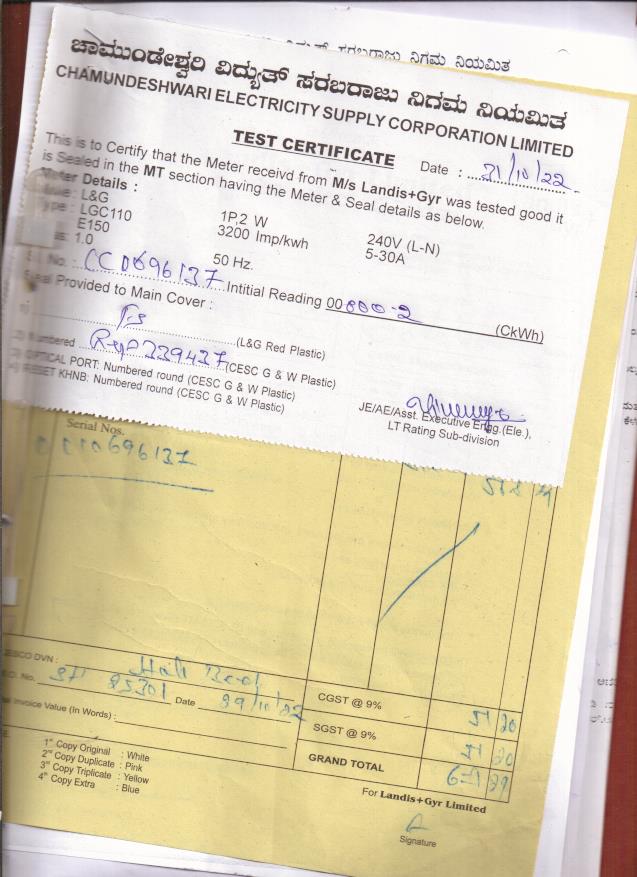 ಸರಬರಾಜು ನಿಗಮ ನಿಯಮಿತ
ಚಾಮುಂಡೇಶ್ವರಿ ವಿದ್ಯುತ್ ಸರಬರಾಜು ನಿಗಮ ನಿಯಮಿತ
CHAMUNDESHWARI ELECTRICITY SUPPLY CORPORATION LIMITED
TEST CERTIFICATE
Date : 21/10/22
This is to Certify that the Meter receivd from M/s Landis+Gyr was tested good it
is Sealed in the MT section having the Meter & Seal details as below.
Meter Details :
: L&G
Type : LGC110 1P,2 W 240V (L-N)
E150 3200 Imp/kwh 5-30A
: 1.0 50 Hz.
No. : CC0696137 Intitial Reading 00 000-2 (CkWh)
Seal Provided to Main Cover :
(L&G Red Plastic)
2) Numbered 339437 (CESC G & W Plastic)
3) OPTICAL PORT: Numbered round (CESC G & W Plastic)
4) RESET KHNB: Numbered round (CESC G & W Plastic)
JE/AE/Asst. Executive Engg.(Ele.),
LT Rating Sub-division
Serial Nos.
CC0696137
DVN :
No. 85301 Date
Invoice Value (In Words) :
CGST @ 9%
SGST @ 9%
GRAND TOTAL
1st Copy Original : White
2nd Copy Duplicate : Pink
3rd Copy Triplicate : Yellow
4th Copy Extra : Blue
For Landis+Gyr Limited
Signature